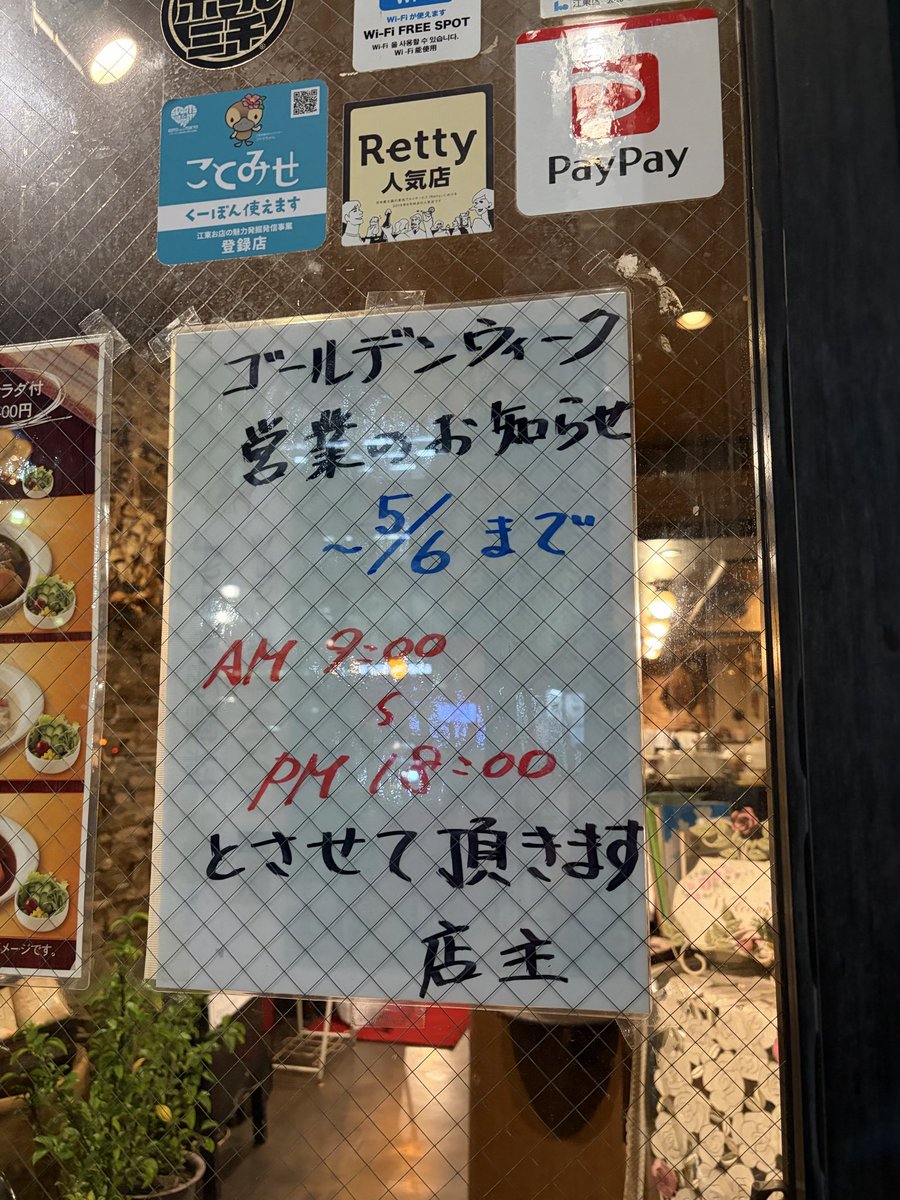 ホール
ニチ
Wi-Fi が使えます
Wi-Fi FREE SPOT
Wi-Fi を使用할 수 있습니다.
江東区
ことみせ
くーぽん使えます
江東お店の魅力発掘発信事業
登録店
Retty
人気店
PayPay
ラダ付
00円
メージです。
ゴールデンウィーク
営業のお知らせ
~5/6まで
AM 9:00
~
PM 18:00
とさせて頂きます
店主